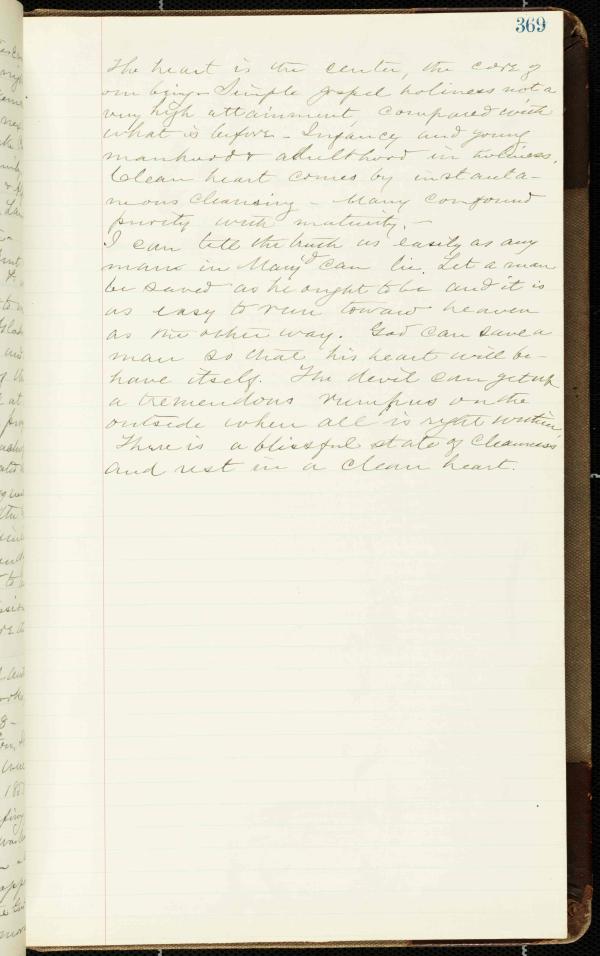 369
The heart is the center, the core of
our being - Simple gospel holiness not a
very high attainment compared with
what is before - Infancy and young
manhood & adulthood in holiness.
Clean heart comes by instanta-
neous cleansing - Many confound
purity with maturity. -
I can tell the truth as easily as any
man in Mary'd can lie. Let a man
be saved as he ought to be and it is
as easy to run toward heaven
as the other way. God can save a
man so that his heart will be-
have itself. The devil can get up
a tremendous rumpus on the
outside when all is right within
There is a blissful state of cleanness
and rest in a clean heart.